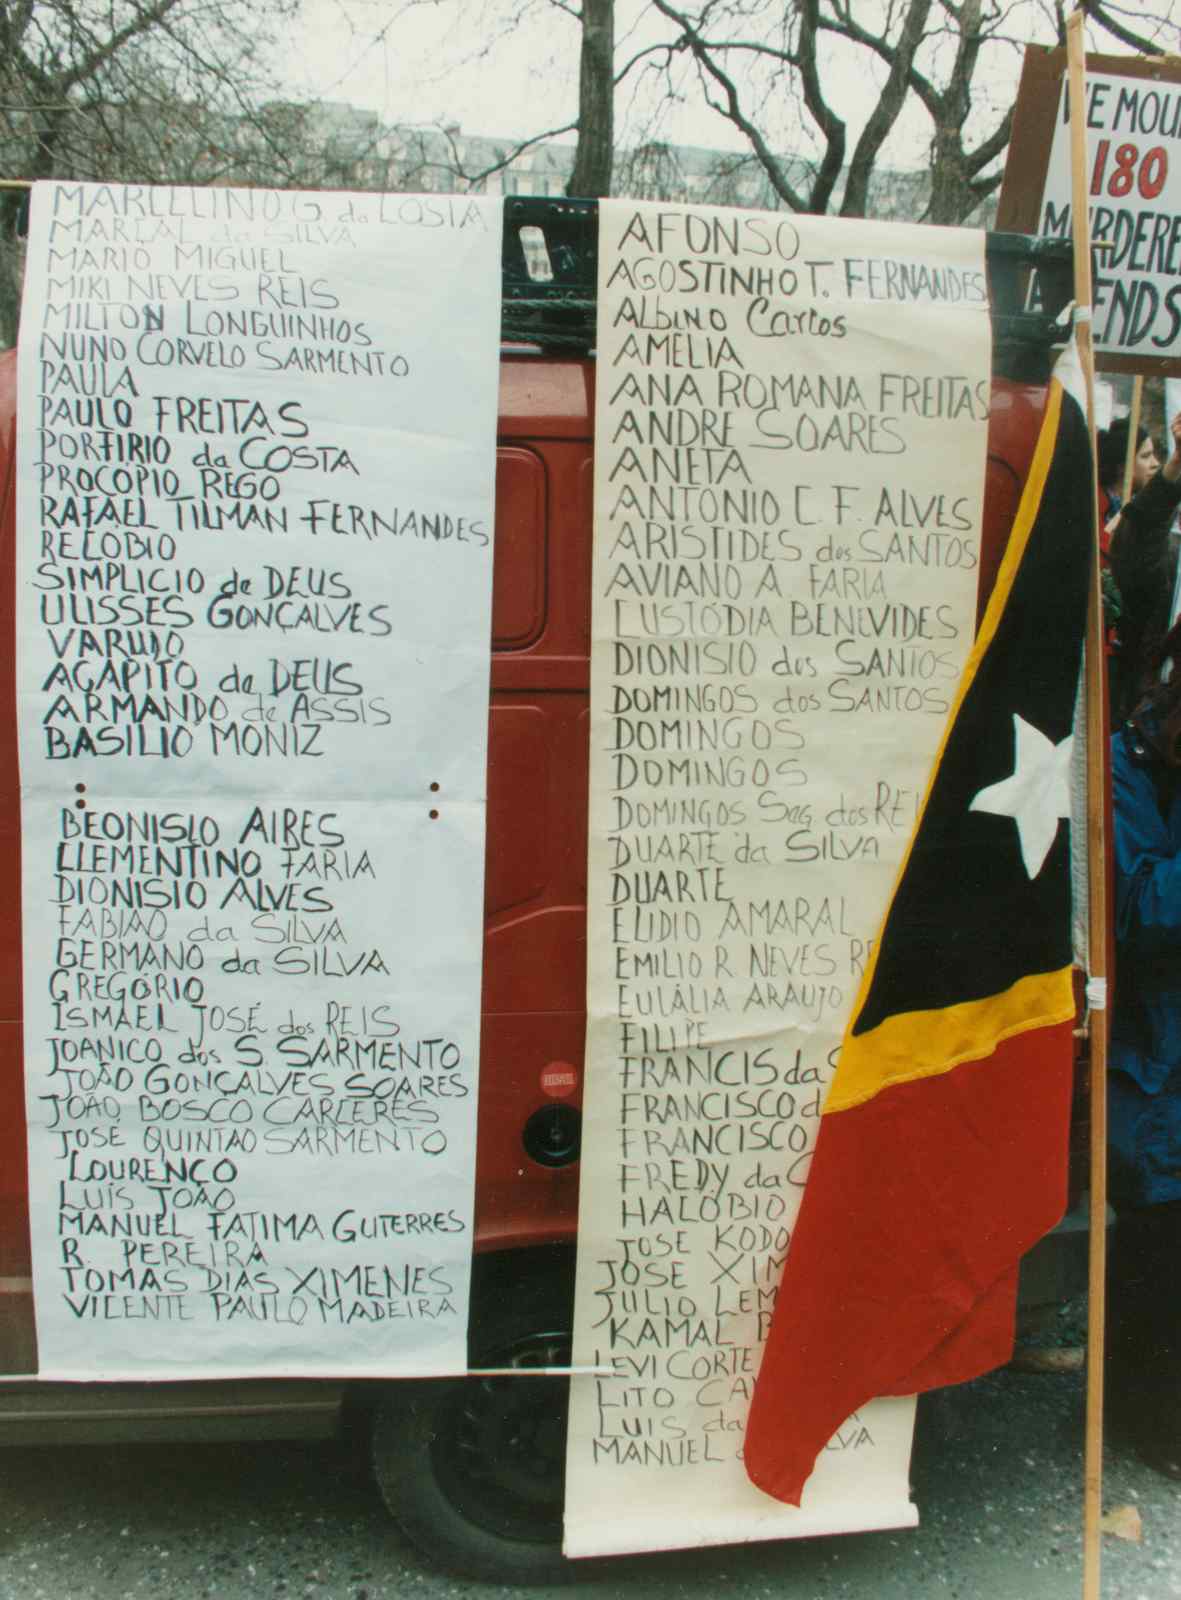 MARCELINO G. da COSTA
MARÇAL da SILVA
MARIO MIGUEL
MIKI NEVES REIS
MILTON LONGUINHOS
NUNO CORVELO SARMENTO
PAULA
PAULO FREITAS
PORFIRIO da COSTA
PROCÓPIO REGO
RAFAEL TILMAN FERNANDES
RELÓBIO
SIMPLICIO de DEUS
ULISSES GONÇALVES
VARUDO
AGAPITO de DEUS
ARMANDO de ASSIS
BASILIO MONIZ
BEONISIO AIRES
CLEMENTINO FARIA
DIONISIO ALVES
FABIAO da SILVA
GERMANO da SILVA
GREGÓRIO
ISMAEL JOSÉ dos REIS
JOANICO dos S. SARMENTO
JOÃO GONÇALVES SOARES
JOÃO BOSCO CARCERES
JOSÉ QUINTAO SARMENTO
LOURENÇO
LUÍS JOÃO
MANUEL FATIMA GUTERRES
R. PEREIRA
TOMAS DIAS XIMENES
VICENTE PAULO MADEIRA
AFONSO
AGOSTINHO T. FERNANDES
ALbINO Carlos
AMELIA
ANA ROMANA FREITAS
ANDRE SOARES
ANETA
ANTONIO C. F. ALVES
ARISTIDES dos SANTOS
AVIANO A. FARIA
CUSTÓDIA BENEVIDES
DIONISIO dos SANTOS
DOMINGOS dos SANTOS
DOMINGOS
DOMINGOS
DOMINGOS Seg. dos REI
DUARTE da SILVA
DUARTE
ELIDIO AMARAL
EMILIO R NEVES RE
EULÁLIA ARAUJO
FILIPE
FRANCIS da S
FRANCISCO d
FRANCISCO
FREDY da C
HALÓBIO
JOSE KODO
JOSE XIM
JULIO LEM
KAMAL B
LEVI CORTE
LITO CA
LUIS da
MANUEL LVA
WE MOU
180
MURDERE
ENDS